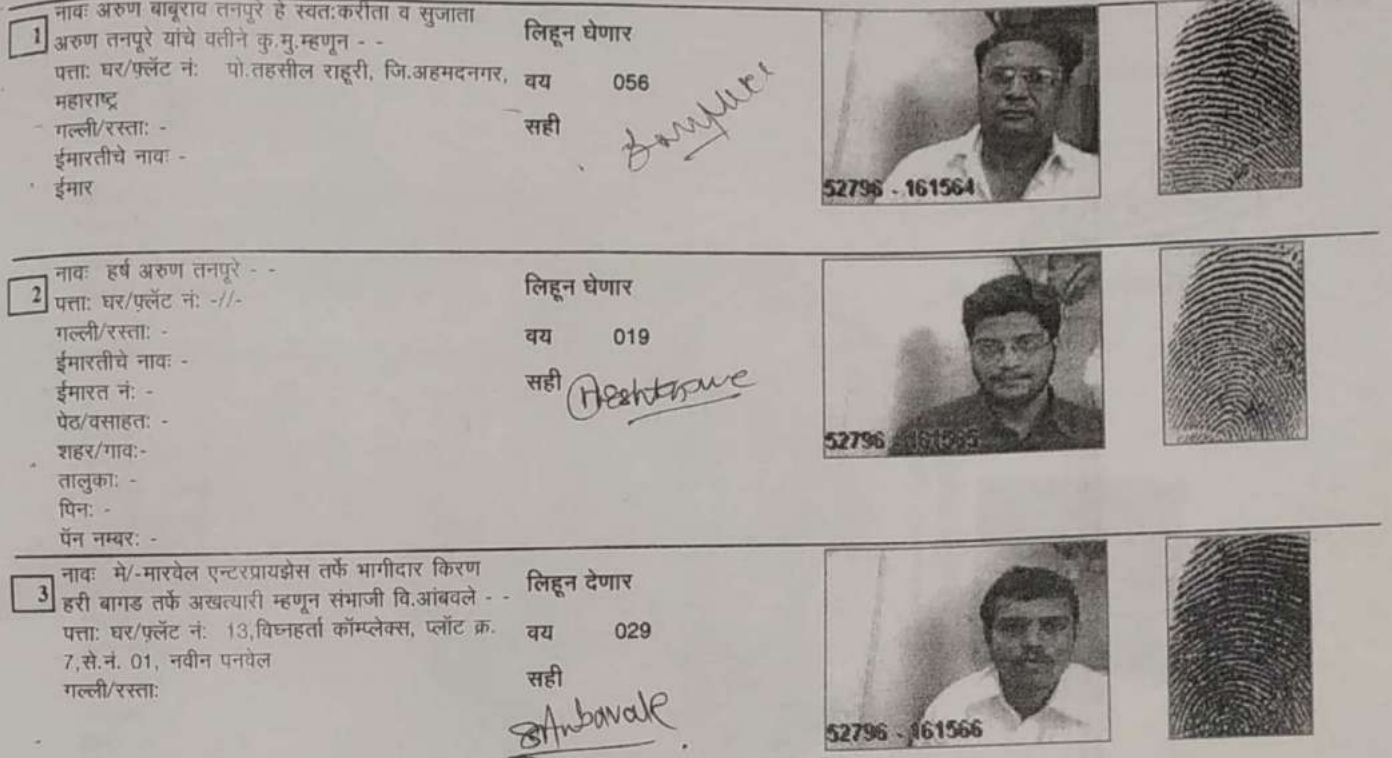 1
नावः अरुण बाबूराव तनपूरे हे स्वतःकरीता व सुजाता
अरुण तनपूरे यांचे वतीने कु.मु.म्हणून - -
पत्ताः घर/फ्लॅट नं: पो.तहसील राहूरी, जि.अहमदनगर,
महाराष्ट्र
गल्ली/रस्ताः -
ईमारतीचे नावः -
ईमार
लिहून घेणार
वय 056
सही
52796 - 161564
2
नावः हर्ष अरुण तनपूरे - -
पत्ताः घर/फ्लॅट नं: -//-
गल्ली/रस्ताः -
ईमारतीचे नावः -
ईमारत नं: -
पेठ/वसाहतः -
शहर/गावः-
तालुकाः -
पिनः -
पॅन नम्बरः -
लिहून घेणार
वय 019
सही
52796 - 161565
3
नावः मे/-मारवेल एन्टरप्रायझेस तर्फे भागीदार किरण
हरी बागड तर्फे अखत्यारी म्हणून संभाजी वि.आंबवले - -
पत्ताः घर/फ्लॅट नं: 13,विघ्नहर्ता कॉम्प्लेक्स, प्लॉट क्र.
7,से.नं. 01, नवीन पनवेल
गल्ली/रस्ताः
लिहून देणार
वय 029
सही
SAmbavale
52796 - 161566